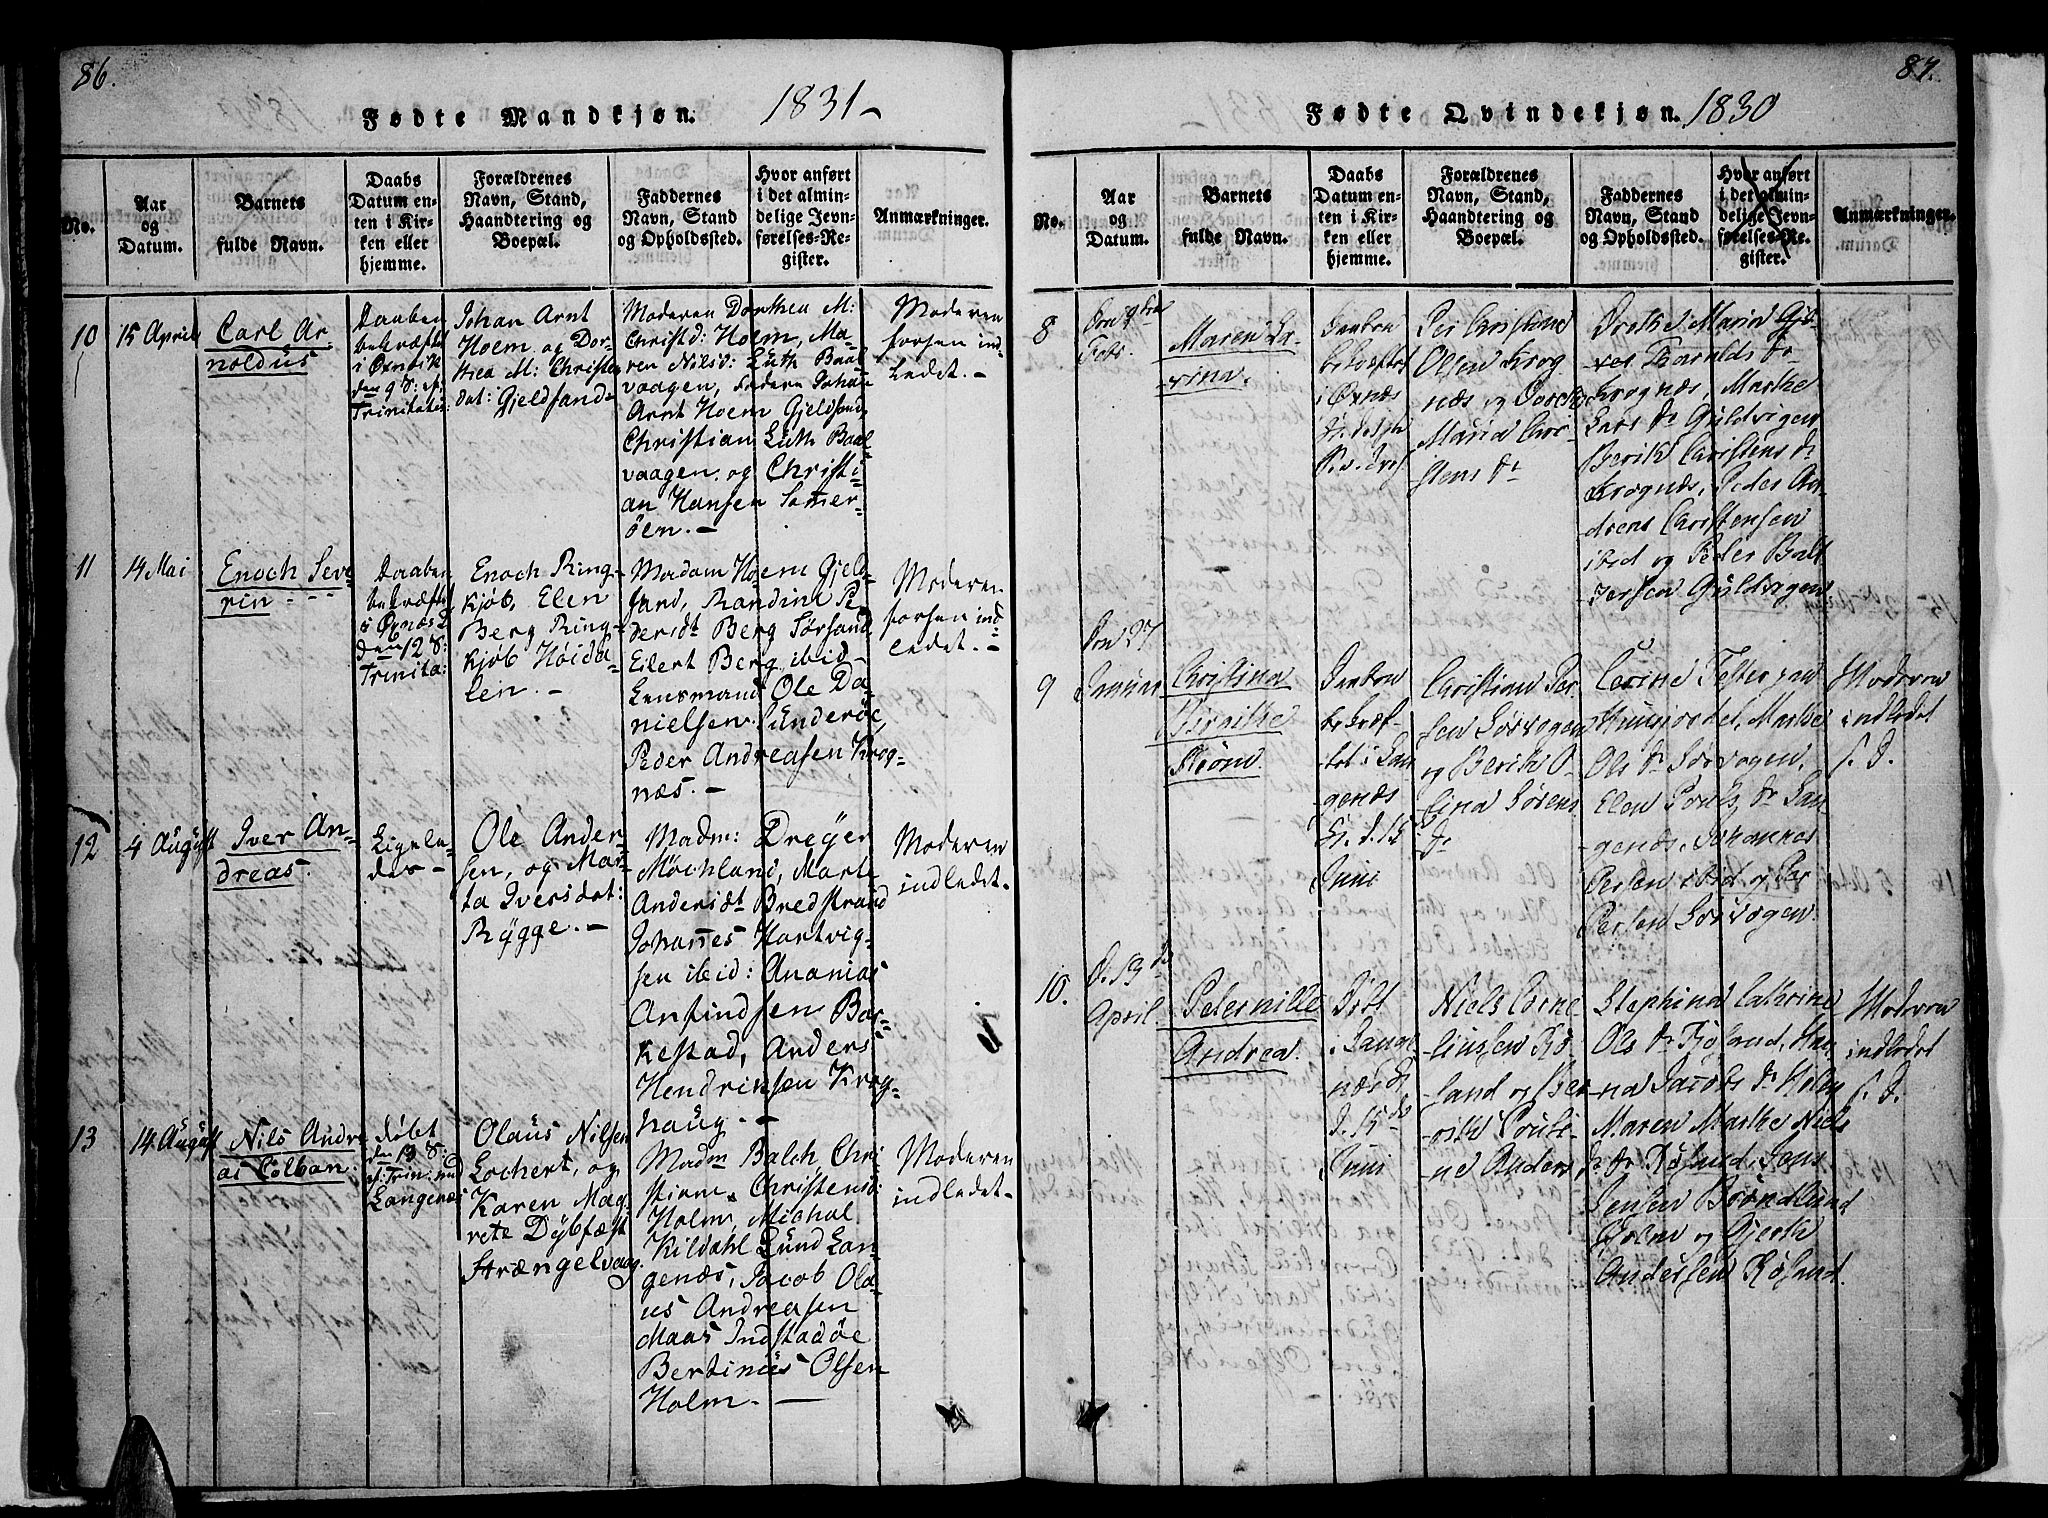 86.
Fødte Mandkjøn. 1831 -
No.
Aar
og
Datum.
Barnets
fulde Navn.
Daabs
Datum en-
ten i Kir-
ken eller
hjemme.
Forældrenes
Navn, Stand,
Haandtering og
Boepæl.
Faddernes
Navn, Stand
og Opholdssted.
Hvor anført
i det almin-
delige Jevn-
førelses-Re-
gister.
Anmærkninger.
10
15 April
Carl Ar-
noldus
Daaben
bekræftet
i Øxnæs
den 9 S: ef:
Trinitatis:
Johan Arnt
Hoem og Dor-
thea M: Christen
dat: Gjeldsand
Moderen Dorthea M:
Christd: Hoem, Ma-
ren Nilsd: Luth Baal-
vaagen, Faderen Johan
Arnt Hoem Gjeldsand,
Christian Luth Baal-
vaagen, og Christi-
an Hansen Somer-
öem. -
Moderen
forsen ind-
ledet. -
11
14 Mai
Enoch Seve-
rin - - -
Daaben
bekræftet
i Øxnæs
den 12 S:
Trinita:
Enoch Ring-
kjøb, Elen
Berg Ring-
kjøb Höida-
len. -
Madam Hoem Gjeld-
sand, Randine Pe-
dersdt Berg Sørsand,
Eilert Berg ibid -
Lensmand Ole Da-
nielsen Sunderöe,
Peder Andreasen Krog-
næs. -
Moderen
forsen ind-
ledet. -
12
4 August
Iver An-
dreas.
Ligele-
des -
Ole Ander-
sen, og Mar-
ta Iversdat:
Rÿgge. -
Madm: Dreÿer
Møchland, Marte
Andersdt Bredstrand
Johannes Hartvig-
sen ibid: Ananias
Anfindsen Bar-
kestad, Anders
Hendrinsen Krog-
haug. -
Moderen
indledet.
13
14 August
Nils Andre-
as Colban:
døbt
den 13 S:
ef: Trin: ved
Langenæs
Olaus Nilsen
Lochert, og
Karen Mag-
rete Dÿbfæst
Strængelvaag.
Madm Balch Chri-
stiane Christensd:
Holm, Michal
Kildahl Lund Lan-
genæs, Jacob Ola-
us Andreasen
Maas Indstadöe
Bertinus Olsen
Holm. -
Moderen
indledet.
87.
Fødte Qvindekjøn. 1830
No.
Aar
og
Datum.
Barnets
fulde Navn.
Daabs
Datum en-
ten i Kir-
ken eller
hjemme.
Forældrenes
Navn, Stand,
Haandtering og
Boepæl.
Faddernes
Navn, Stand
og Opholdssted.
Hvor anført
i det almin-
delige Jevn-
førelses-Re-
gister.
Anmærkninger.
8
Febr.
Maren La-
rina.
Daaben
i Øxnæs
Per Christian
Olsen Krog
næs og Dorthe
Maria Chri-
stens dr
Dorthe Maria
Haralds dr
Krognæs, Marthe
Lars dr Guldvigen
Berith Christens dr
Krognæs, Peder An-
dreas Christensen
ibid og Peder Balt
zersen Guldvigen
9
Den 27
Januar
Christina
Bergithe
Strøm
Daaben
bekræf-
tet i Lan
genæs
K. d. 15
Juni
Christian Per-
sen Sørvogen
og Berith O-
lina Sørens
dr
Marthe
Ols dr Sørvogen,
Elen Pouls dr Lan-
genæs, Johannes
Persen ibid og Per
Persen Sørvogen
Moderen
indledet
s. D.
10.
D. 13de
April
Peternille
Andrea.
Døbt
i Lange
næs K.
d. 15de
Juni
Niels Corne
liussen Rø-
sand og Be-
rith Pouli-
ne Anders dr
Stephina Cathrine
Ols dr Røsand, Han
na Jacobs dr Holm
Maren Marthe Niels
dr Røsand, Jens
Jensen Brøndlund
Holm og Gjerth
Andersen Røsand.
Moderen
indledet
s. D.